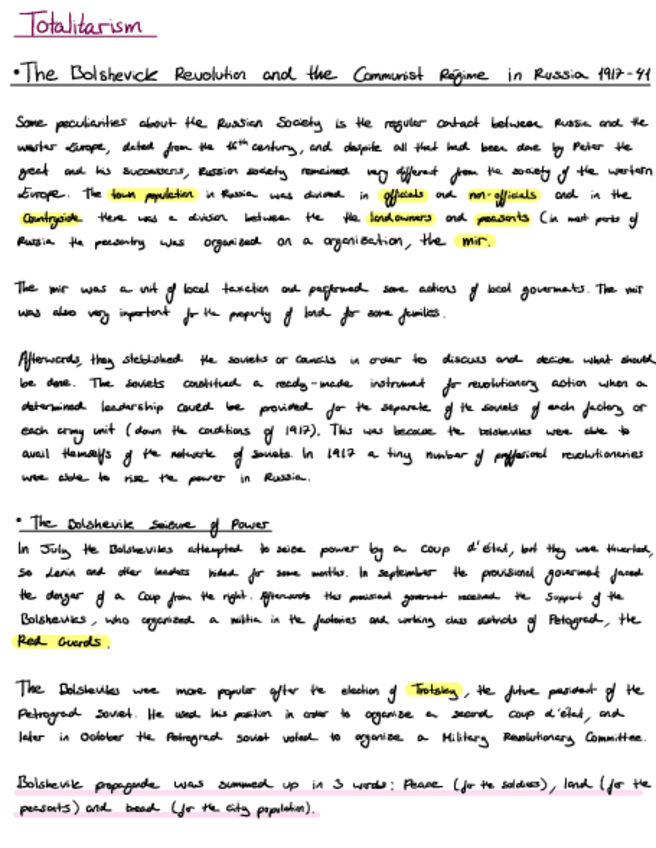 Totalitarism
• The Bolshevick Revolution and the Communist Régime in Russia 1917-41
Some peculiarities about the Russian Society is the regular contact between Russia and the
wester Europe, dated from the 16th century, and despite all that had been done by Peter the
great and his successors, Russian society remained very different from the society of the western
Europe. The town population in Russia was divided in officials and non-officials and in the
Countryside there was a division between the the landowners and peasants (in most parts of
Russia the peasantry was organized on a organisation, the mir.
The mir was a unit of local taxation and performed some actions of local goverments. The mir
was also very important for the property of land for some families.
Afterwards, they stablished the soviets or Councils in order to discuss and decide what should
be done. The soviets constitued a ready-made instrument for revolutionary action when a
determined leadership could be provided for the separate of the soviets of each factory or
each army unit (down the conditions of 1917). This was because the bolsheviks were able to
avail themselfs of the network of soviets. In 1917 a tiny number of proffesional revolutioneries
were able to rise the power in Russia.
• The Bolshevik Seizure of Power
In July the Bolsheviks attempted to seize power by a coup d'état, but they were thwarted,
so Lenin and other leaders hided for some months. In september the provisional goverment faced
the danger of a Coup from the right. Afterwards this goverment received the Support of the
Bolsheviks, who organized a militia in the factories and working class districts of Petograd, the
Red Guards.
The Bolsheviks were more popular after the election of Trotsky, the future president of the
Petrograd Soviet. He used his position in order to organize a second coup d'état, and
later in October the Petrograd soviet voted to organize a Military Revolutionary Committee.
Bolshevik propaganda was summed up in 3 words: Peace (for the soldiers), land (for the
peasants) and bread (for the city population).